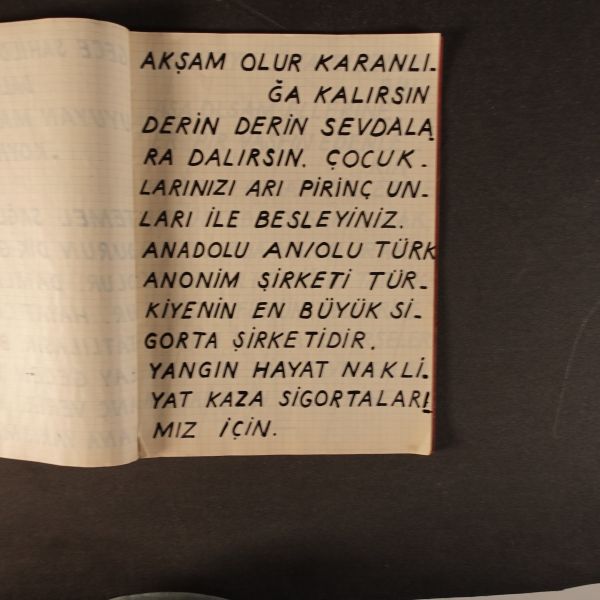 AKŞAM OLUR KARANLI-
ĞA KALIRSIN
DERİN DERİN SEVDALA
RA DALIRSIN. ÇOCUK-
LARINIZI ARI PİRİNÇ UN-
LARI İLE BESLEYİNİZ.
ANADOLU ANIOLU TÜRK
ANONİM ŞİRKETİ TÜR-
KİYENİN EN BÜYÜK Sİ-
GORTA ŞİRKETİDİR.
YANGIN HAYAT NAKLİ-
YAT KAZA SİGORTALARI
MIZ İÇİN.